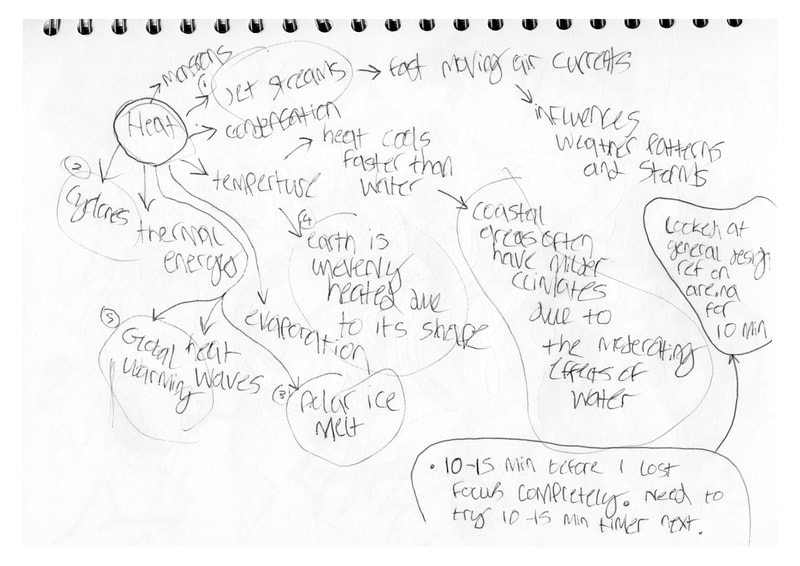 monsoons
① jet streams → fast moving air currents
influences
weather patterns
and storms
Heat
condensation
heat cools
faster than
water
temperture
② cyclones
thermal
energy
④
earth is
unevenly
heated due
to its shape
coastal
areas often
have milder
climates
due to
the moderating
effects of
water
Looked at
general design
ref on
are.na
for
10 min
evaporation
⑤
Global
warming
heat
waves
③ Polar ice
melt
• 10-15 min before I lost
focus completely. Need to
try 10-15 min timer next.